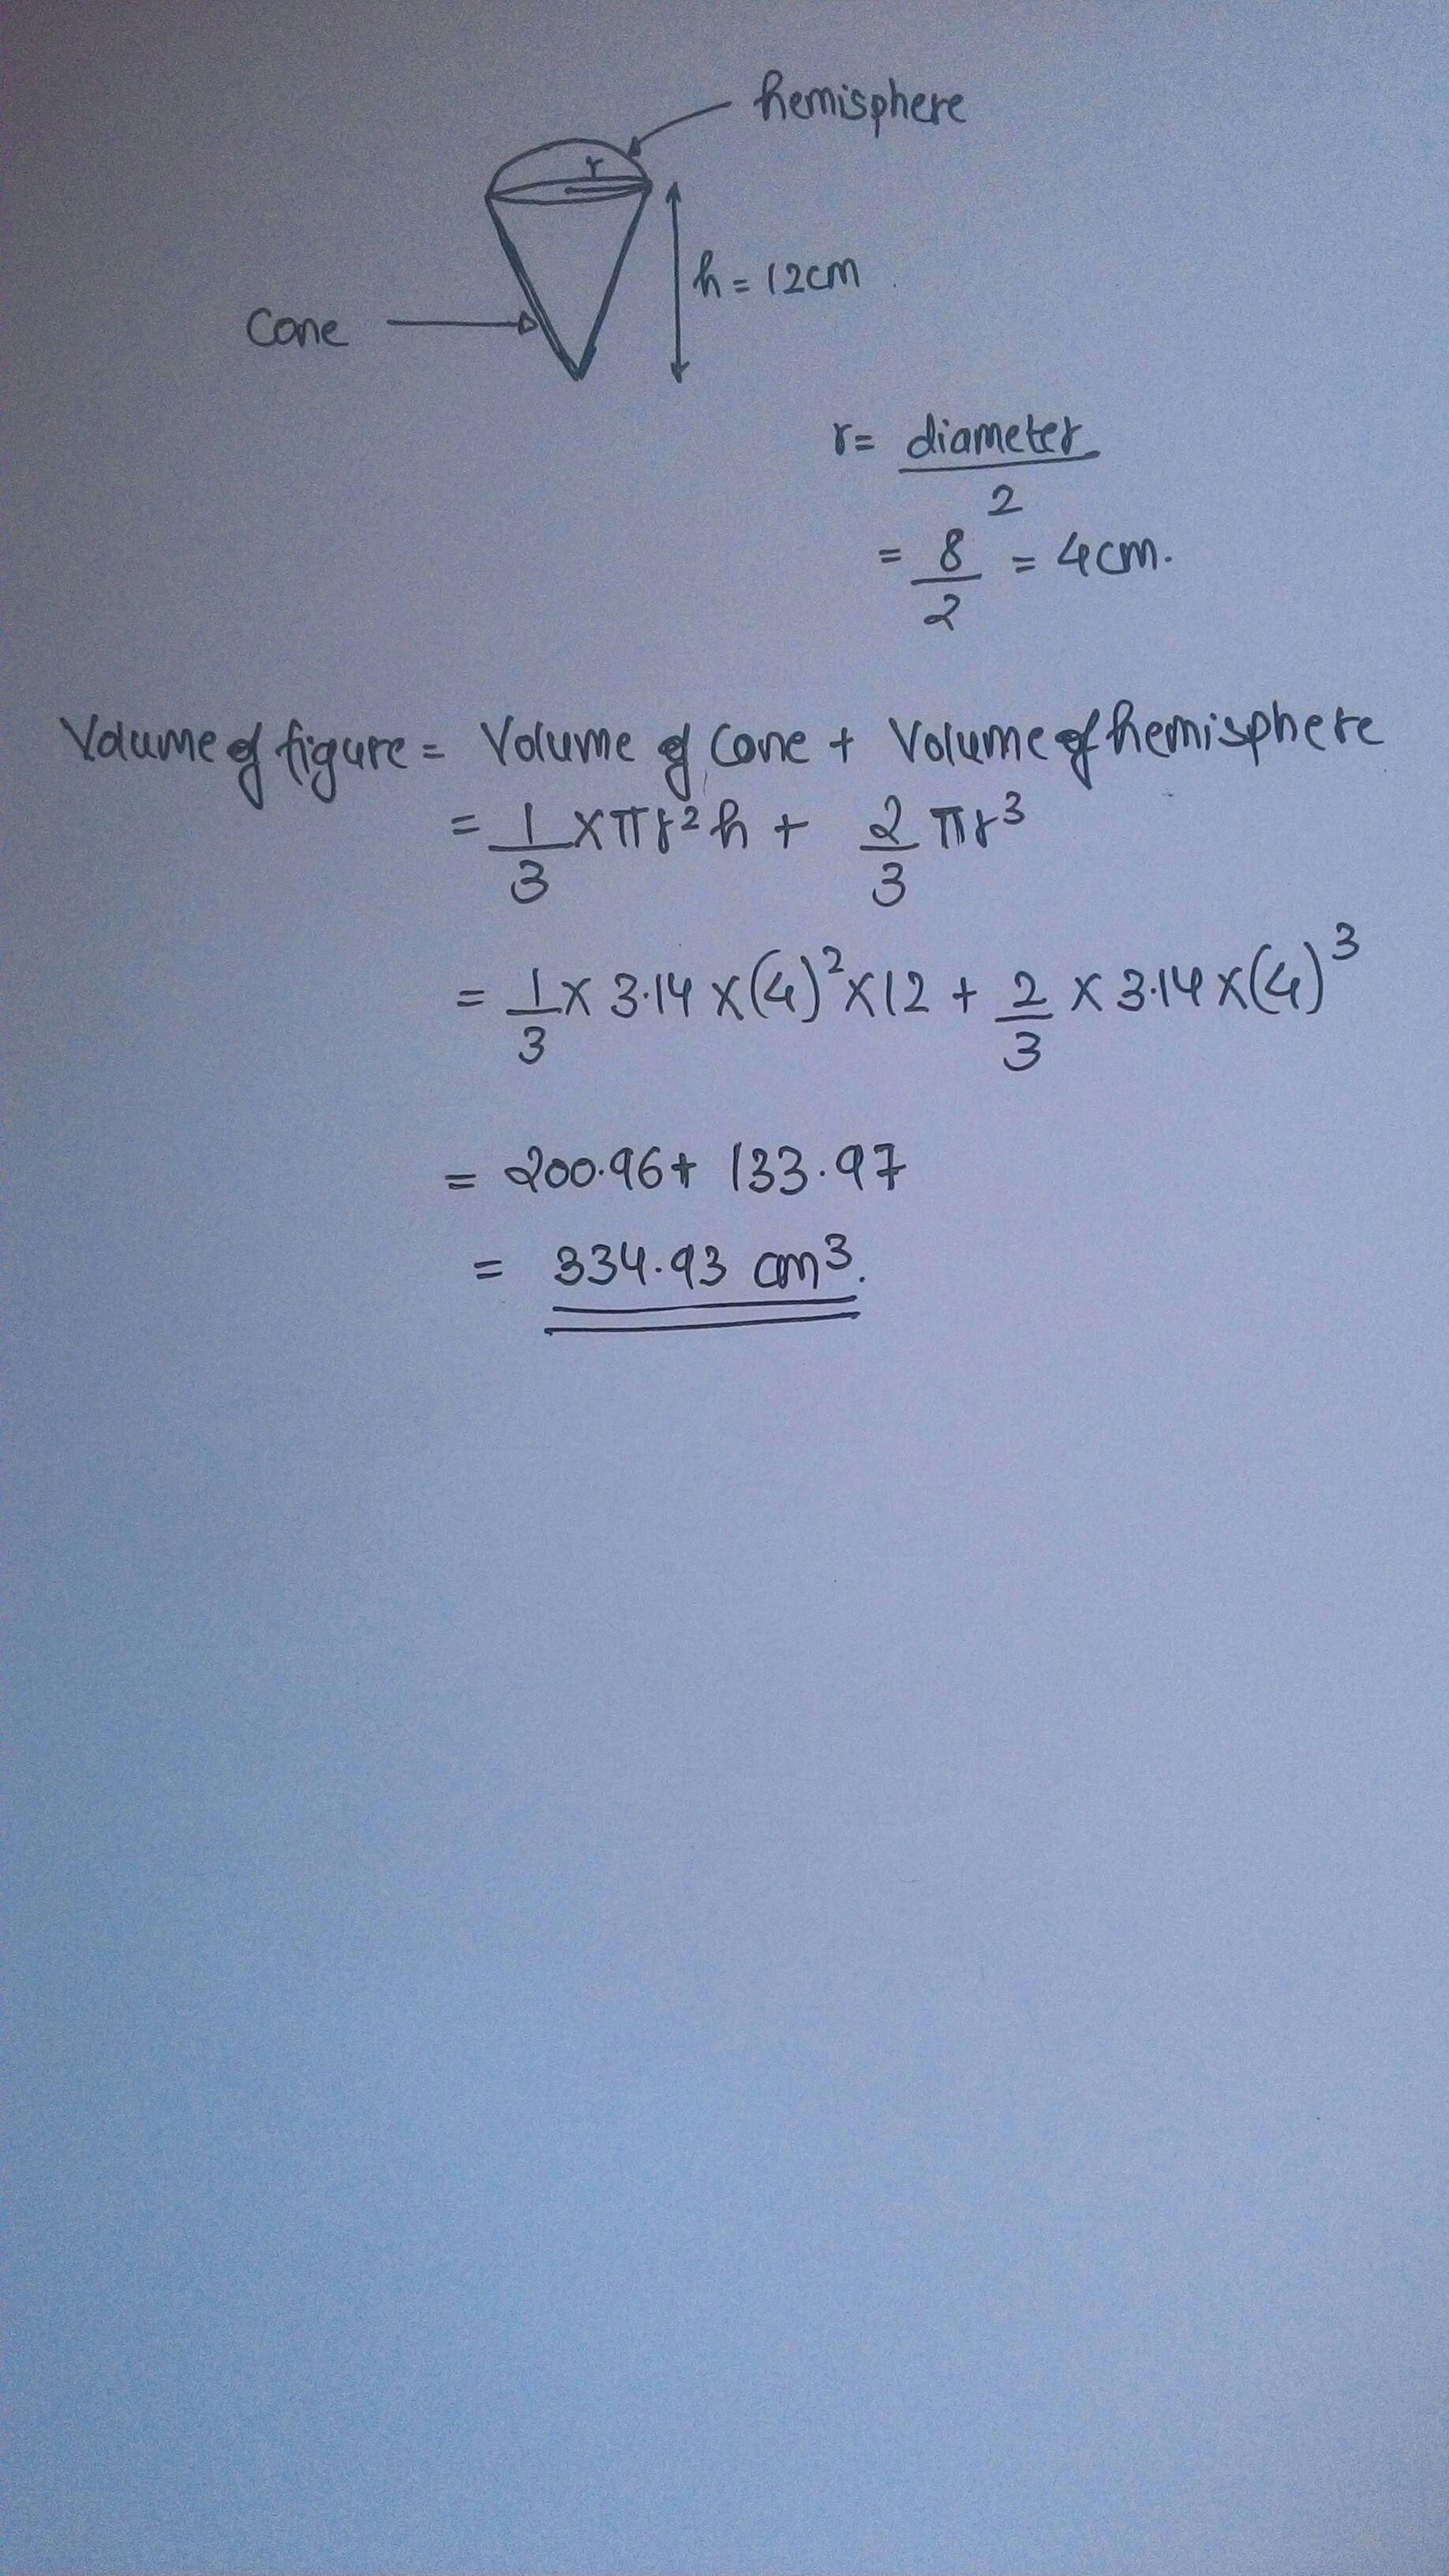 hemisphere
r
h = 12cm
Cone
r = diameter
2
= 8/2 = 4cm.
Volume of figure = Volume of Cone + Volume of hemisphere
= 1/3 × πr²h + 2/3 πr³
= 1/3 × 3.14 × (4)² × 12 + 2/3 × 3.14 × (4)³
= 200.96 + 133.97
= 334.93 cm³.